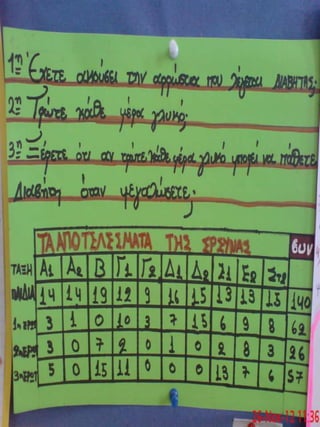 1η Έχετε ακούσει την αρρώστια που λέγεται ΔΙΑΒΗΤΗΣ;
2η Τρώτε κάθε μέρα γλυκό;
3η Ξέρετε ότι αν τρώτε κάθε μέρα γλυκό μπορεί να πάθετε
Διαβήτη όταν μεγαλώσετε;
ΤΑ ΑΠΟΤΕΛΕΣΜΑΤΑ ΤΗΣ ΕΡΕΥΝΑΣ συν
ΤΑΞΗ Α1 Α2 Β Γ1 Γ2 Δ1 Δ2 Ε1 Ε2 Στ2
ΠΑΙΔΙΑ 14 14 19 12 9 16 15 13 13 15 140
1η ΕΡΩΤ 3 1 0 10 3 7 15 6 9 8 62
2η ΕΡΩΤ 3 0 7 2 0 1 0 2 8 3 26
3η ΕΡΩΤ 5 0 15 11 0 0 0 13 7 6 57
12 11:36